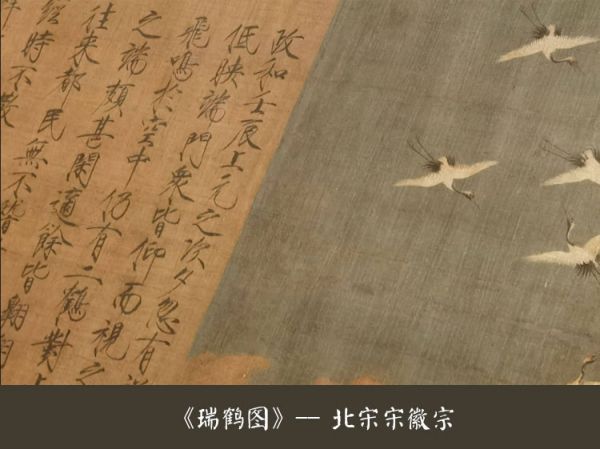 政和壬辰上元之次夕忽有
低映端門衆皆仰而視之
飛鳴於空中仍有二鶴對
之端頗甚閑適餘皆翱
往來都民無不稽
經時不散
《瑞鹤图》-- 北宋宋徽宗